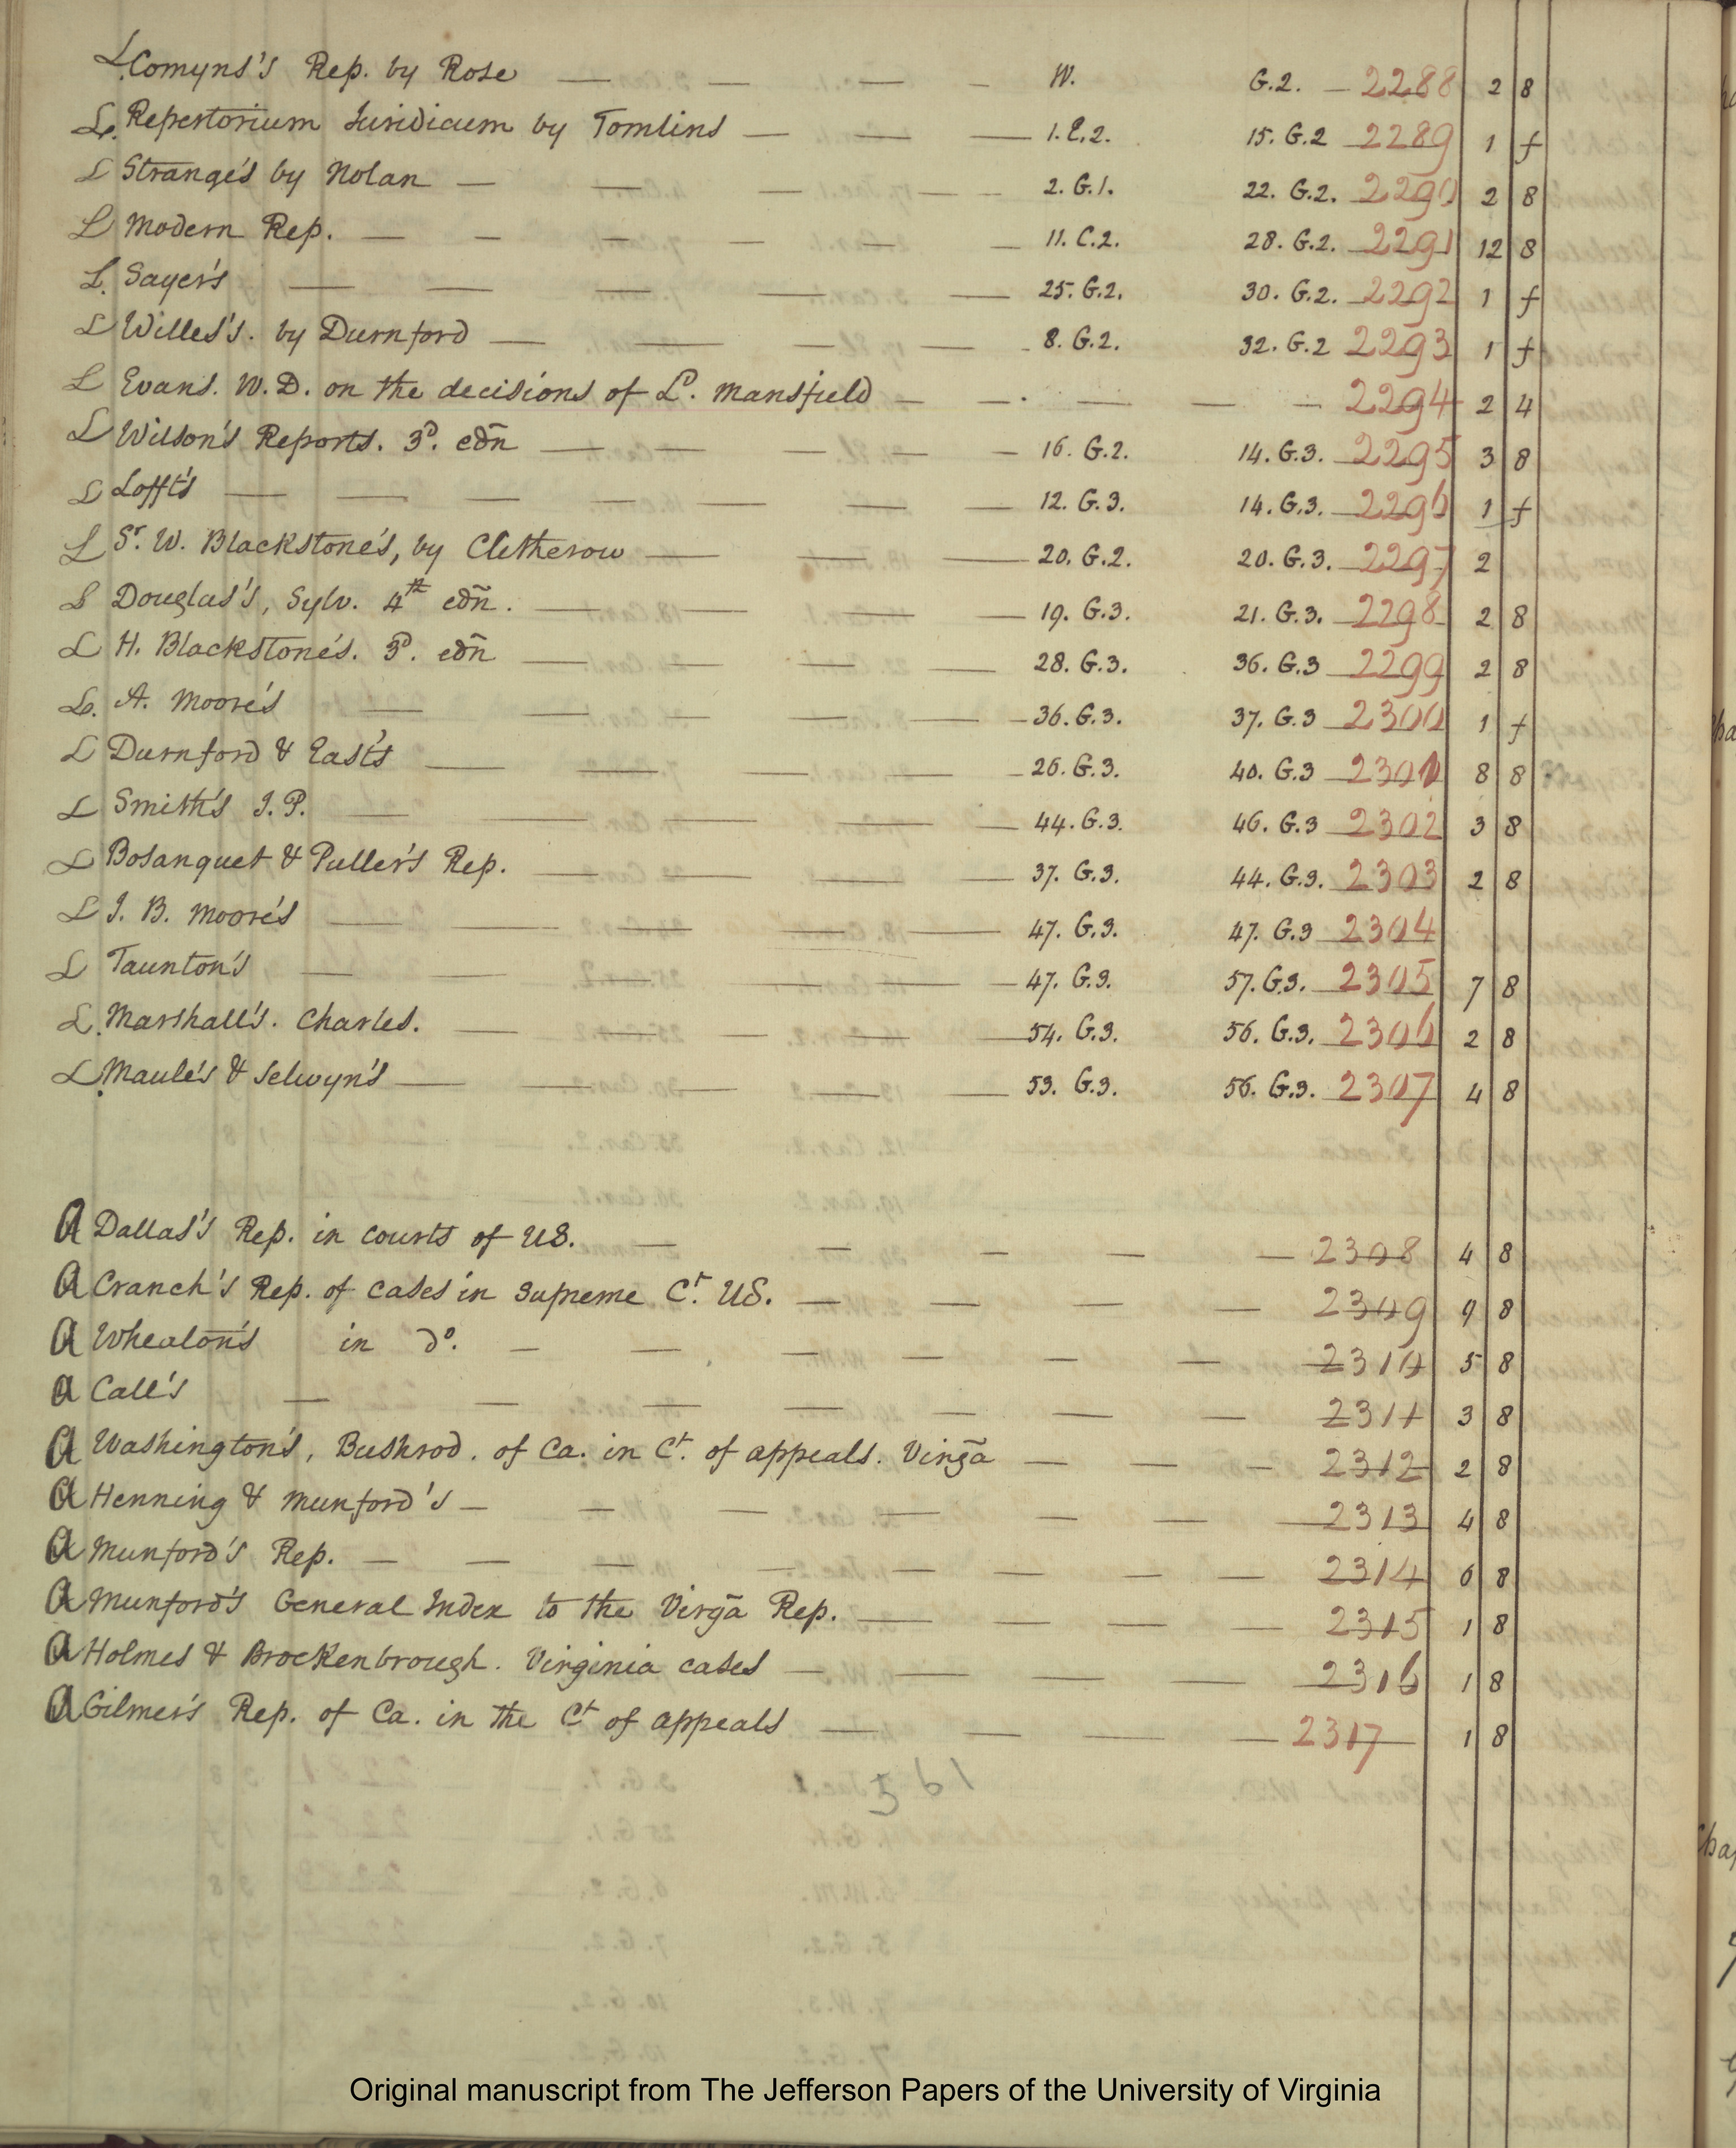 L Comyns's Rep. by Rose — — — — W. G.2. — 2288 2 8
L. Repertorium Juridicum by Tomlins — — — 1. E.2. 15. G.2 2289 1 f
L Strange's by Nolan — — — — — 2. G.1. 22. G.2. 2290 2 8
L Modern Rep. — — — — — — 11. C.2. 28. G.2. 2291 12 8
L. Sayer's — — — — — 25. G.2. 30. G.2. 2292 1 f
L Willes's. by Durnford — — — — - 8. G.2. 32. G.2 2293 1 f
L Evans. W.D. on the decisions of Ld. Mansfield — — . — — — 2294 2 4
L Wilson's Reports. 3d. edñ — — — — — 16. G.2. 14. G.3. 2295 3 8
L Lofft's — — — — — — — 12. G.3. 14. G.3. 2296 1 f
L Sr. W. Blackstone's, by Clitherow — — — 20. G.2. 20. G.3. 2297 2
L Douglas's, Sylv. 4th edñ. — — — — 19. G.3. 21. G.3. 2298 2 8
L H. Blackstone's. 3d. edñ — — — — 28. G.3. 36. G.3 2299 2 8
L. A. Moore's — — — — — — 36. G.3. 37. G.3 2300 1 f
L Durnford & East's — — — — — 26. G.3. 40. G.3 2301 8 8
L Smith's J.P. — — — — — — 44. G.3. 46. G.3 2302 3 8
L Bosanquet & Puller's Rep. — — — — 37. G.3. 44. G.3. 2303 2 8
L J. B. Moore's — — — — — 47. G.3. 47. G.3 2304
L Taunton's — — — — — — 47. G.3. 57. G.3. 2305 7 8
L. Marshall's. Charles. — — — — — 54. G.3. 56. G.3. 2306 2 8
L Maule's & Selwyn's — — — — — 53. G.3. 56. G.3. 2307 4 8
A Dallas's Rep. in courts of US. — — — — — 2308 4 8
A Cranch's Rep. of cases in supreme Ct. US. — — — — 2309 9 8
A Wheaton's in do. — — — — — — 2310 5 8
A Call's — — — — — — — 2311 3 8
A Washington's, Bushrod. of Ca. in Ct. of appeals. Virgã — — — 2312 2 8
A Henning & Munford's — — — — — — 2313 4 8
A Munford's Rep. — — — — — — — 2314 6 8
A Munford's General Index to the Virgã Rep. — — — — 2315 1 8
A Holmes & Brockenbrough. Virginia cases — — — — 2316 1 8
A Gilmer's Rep. of Ca. in the Ct of appeals — — — — 2317 1 8
561
Original manuscript from The Jefferson Papers of the University of Virginia